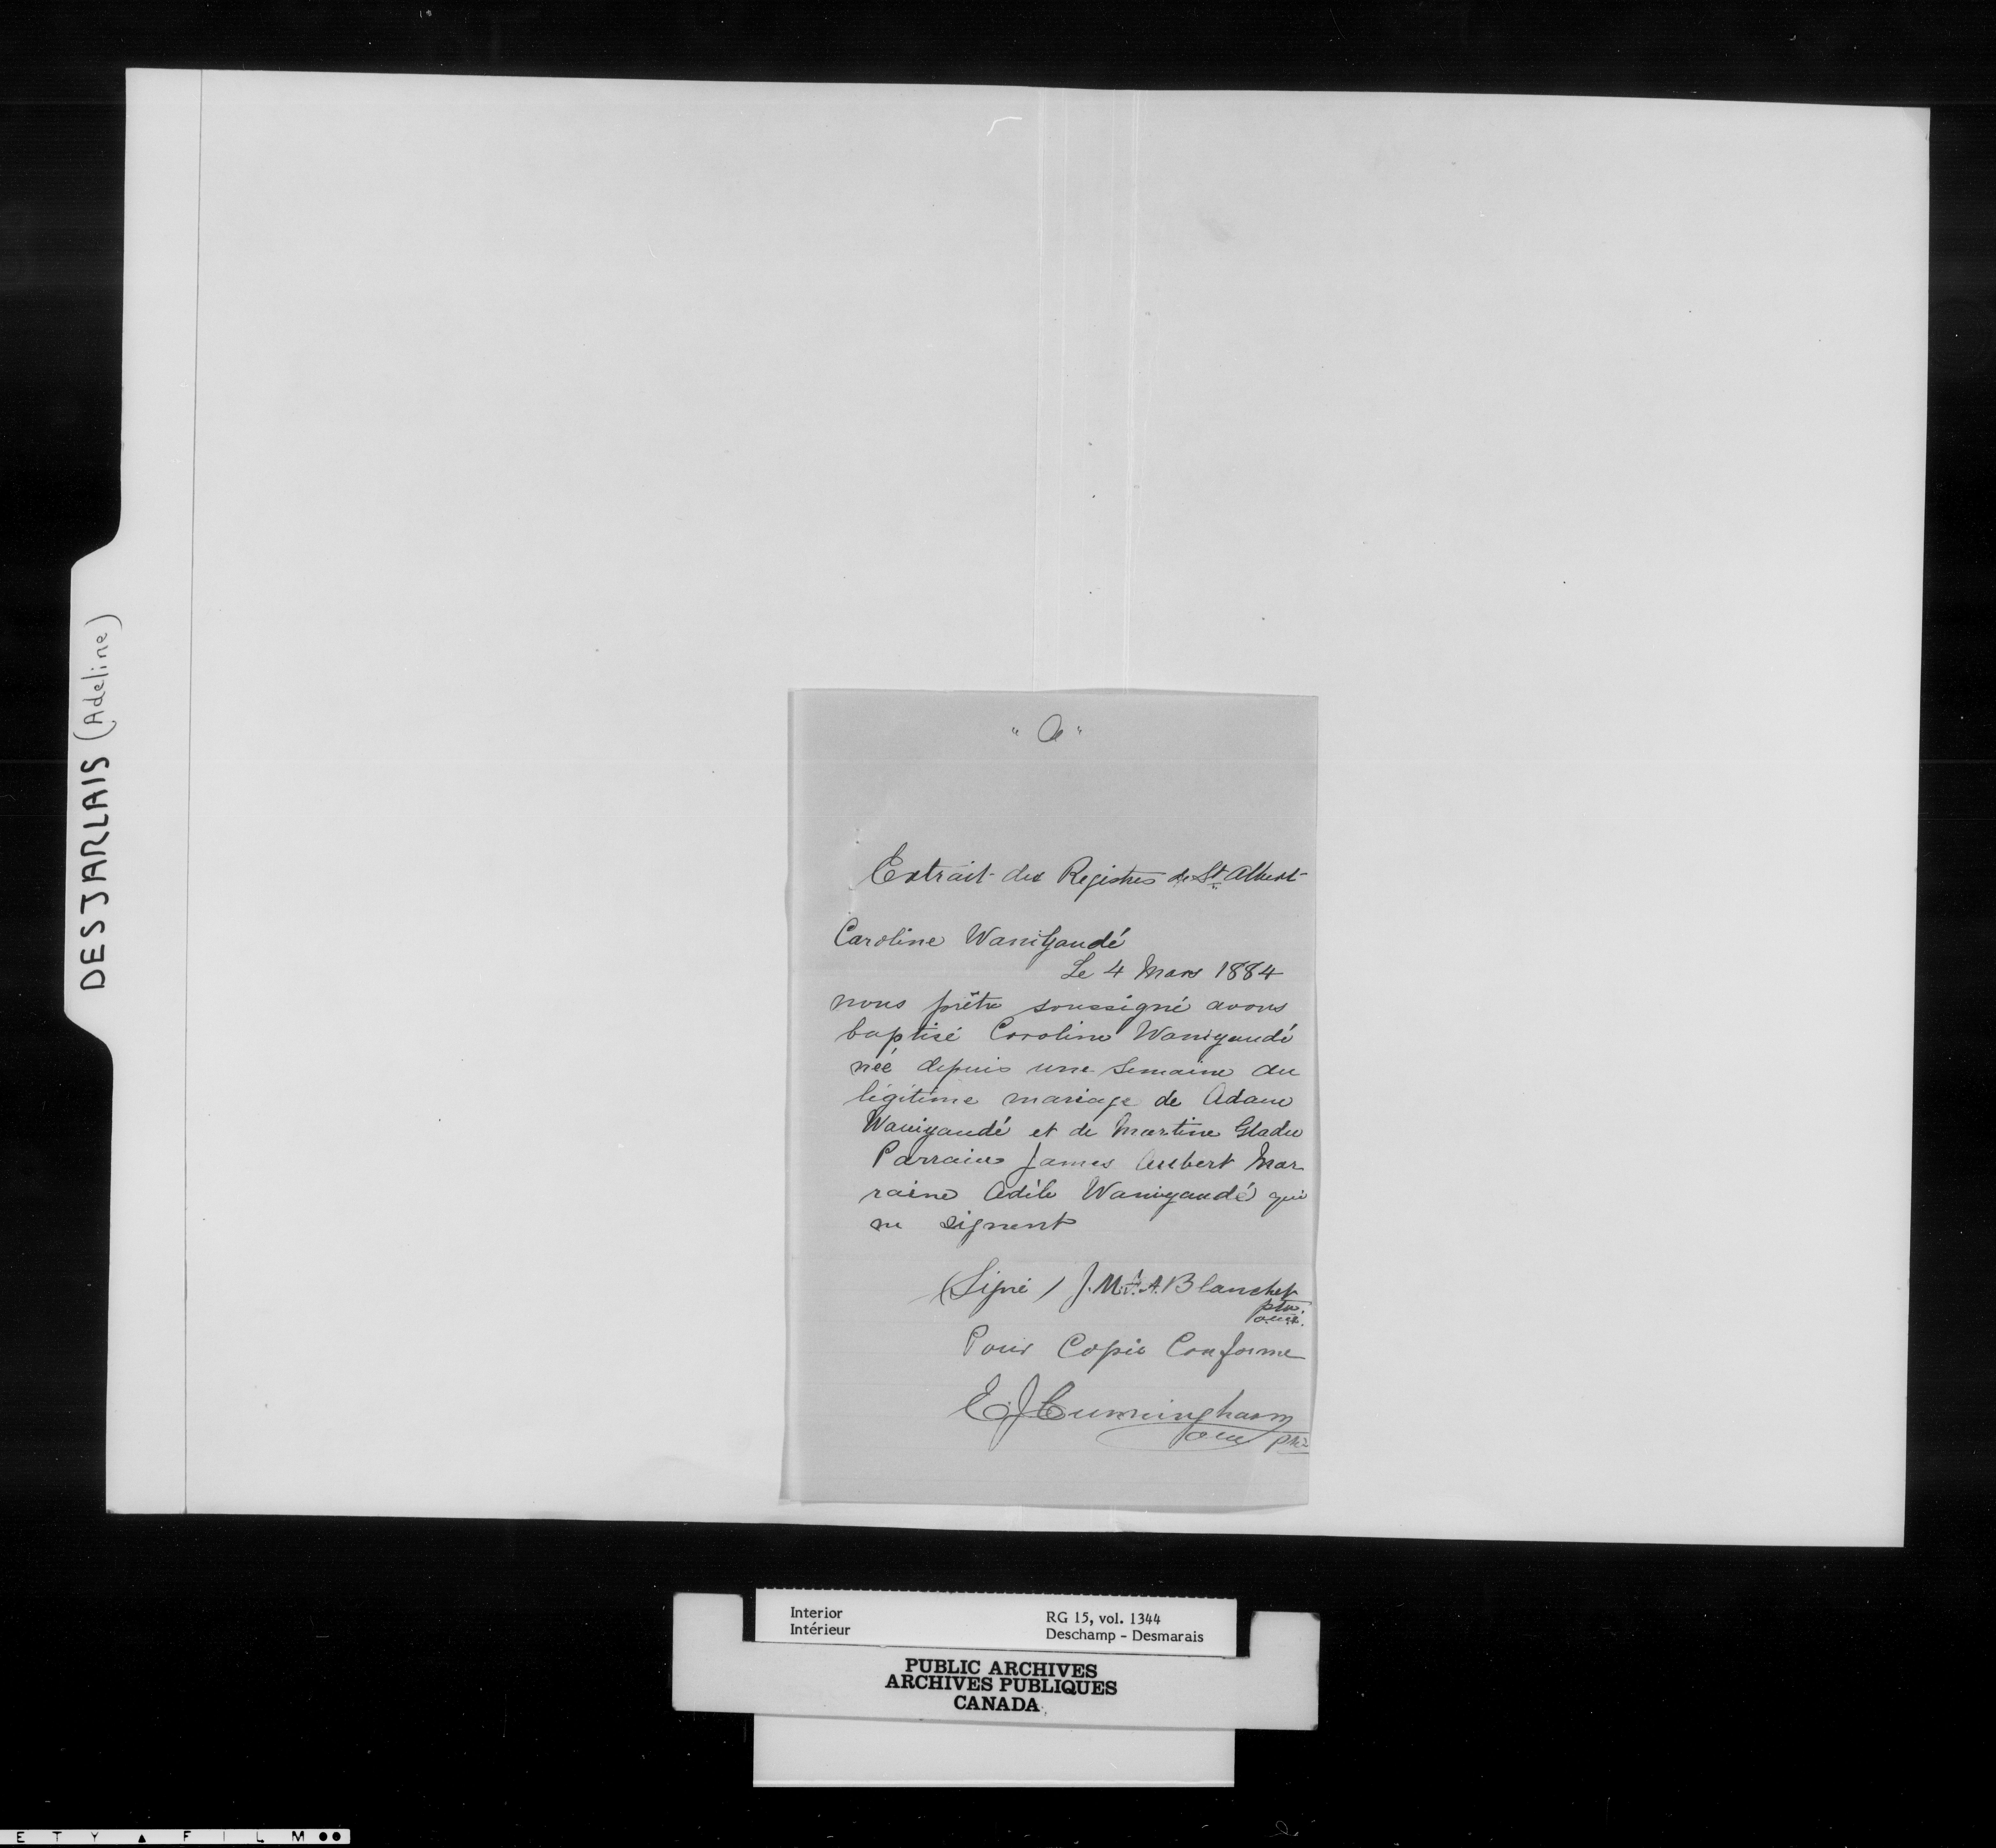 DESJARLAIS (Adeline)
"A"
Extrait des Registres de St. Albert
Caroline Wanigandé
Le 4 Mars 1884
nous prêtre soussigné avons
baptisé Caroline Wanigandé
née depuis une semaine du
légitime mariage de Adam
Wanigandé et de Martine Gladu
Parrain James Aubert Mar
raine Adèle Wanigandé qui
ne signent
(Signé) J.M.J.A. Blanchet
ptre.
o.m.i.
Pour Copie Conforme
E. J. Cunningham
omi ptre
Interior
Intérieur
RG 15, vol. 1344
Deschamp - Desmarais
PUBLIC ARCHIVES
ARCHIVES PUBLIQUES
CANADA
E T Y ▲ F I L M ●●